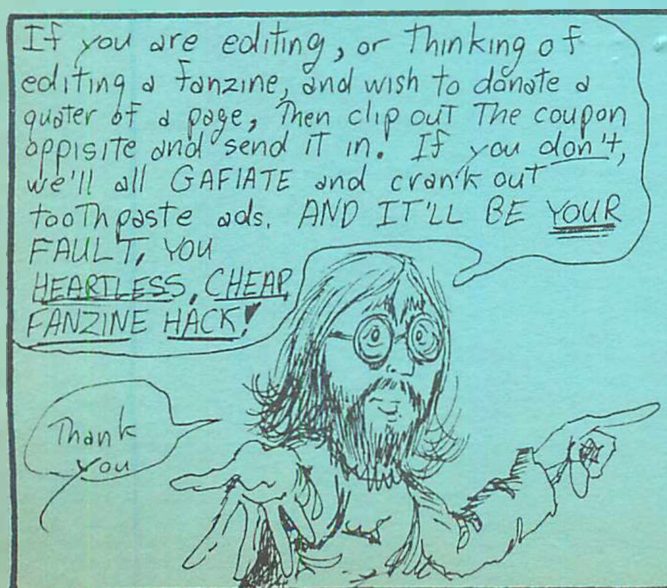 If you are editing, or Thinking of
editing a fanzine, and wish to donate a
quater of a page, Then clip out The coupon
oppisite and send iT in. If you don't,
we'll all GAFIATE and crank out
toothpaste ads. AND IT'LL BE YOUR
FAULT, YOU
HEARTLESS, CHEAP
FANZINE HACK!
Thank
you